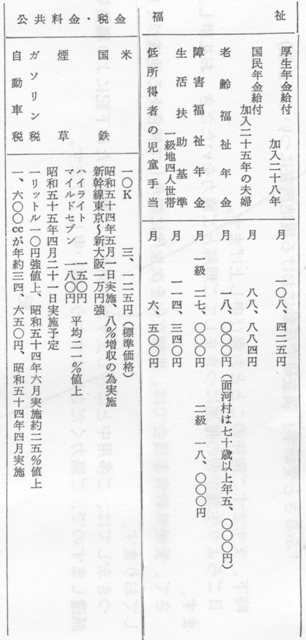 福祉
厚生年金給付 加入二十八年 月 一〇八、四二五円
国民年金給付 加入二十五年の夫婦 月 八八、八八四円
老齢福祉年金 月 一八、〇〇〇円（面河村は七十歳以上年五、〇〇〇円）
障害福祉年金 月 一級 二七、〇〇〇円 二級 一八、〇〇〇円
生活扶助基準 一級地四人世帯 月 一一四、三四〇円
低所得者の児童手当 月 六、五〇〇円
公共料金・税金
米 一〇K 三、一二五円（標準価格）
国鉄 昭和五十四年五月一日実施、八％増収の為実施
新幹線東京～新大阪一万円強
煙草 ハイライト 一五〇円
マイルドセブン 一八〇円 平均二一％値上
昭和五十五年四月二十一日実施予定
ガソリン税 一リットル一〇円強値上、昭和五十四年六月実施約二五％値上
自動車税 一、六〇〇ccが年約三四、六五〇円、昭和五十四年四月実施